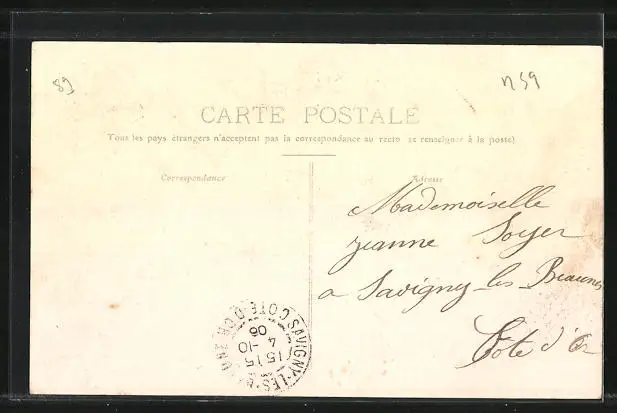 89
n59
CARTE POSTALE
Tous les pays étrangers n'acceptent pas la correspondance au recto (se renseigner à la poste)
Correspondance
Adresse
Mademoiselle
Jeanne Soyer
a Savigny-les-Beaunes
Côte d'Or
SAVIGNY-LES- COTE-D'OR
15 15
4 -10
06